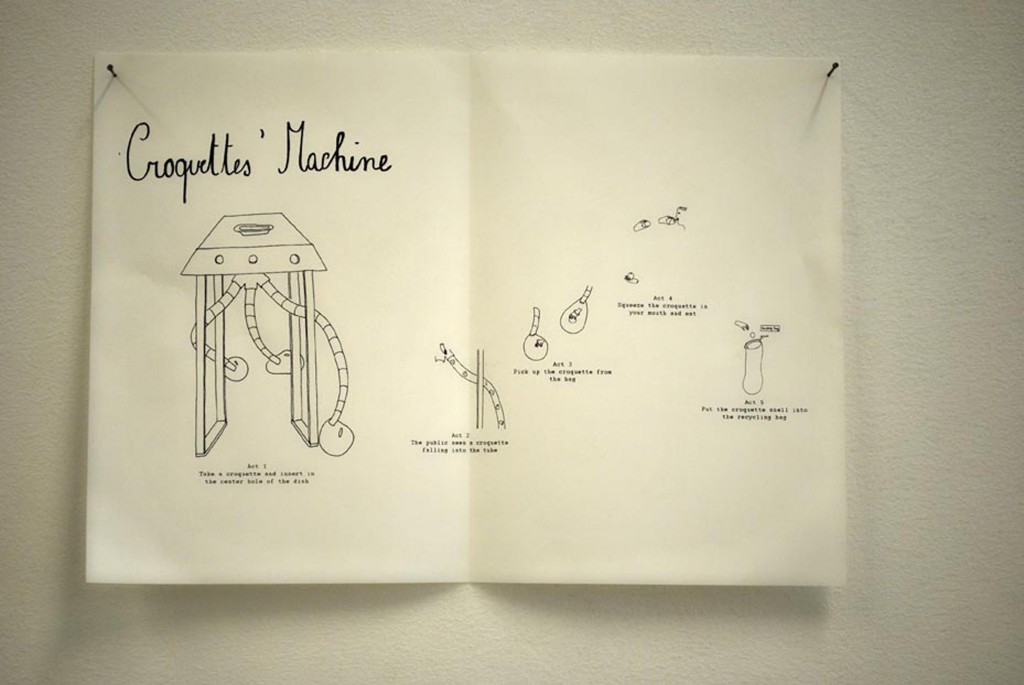 Croquettes' Machine
Act 1
Take a croquette and insert in
the center hole of the dish
Act 2
The public sees a croquette
falling into the tube
Act 3
Pick up the croquette from
the bag
Act 4
Squeeze the croquette in
your mouth and eat
Act 5
Put the croquette shell into
the recycling bag